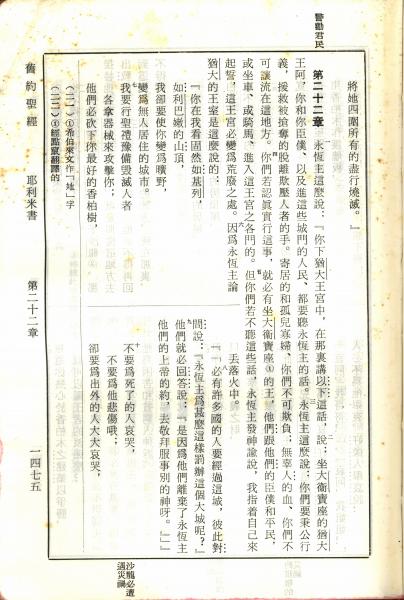 警勸君民
將她四圍所有的盡行燒滅。』
第二十二章　一永恆主這麼說：『你下猶大王宮中，在那裏講以下這話，二說：坐大衛寶座的猶大
王阿，你和你臣僕、以及進這些城門的人民、都要聽永恆主的話。三永恆主這麼說：你們要秉公行
義，援救被搶奪的脫離欺壓人者的手。寄居的和孤兒寡婦、你們不可欺負；無辜人的血、你們不
可讓流在這地方。四你們若認真實行這事，就必有坐大衛寶座①的王，他們跟他們的臣僕和平民，
或坐車、或騎馬、進入這王宮之各門的。五但你們若不聽這些話，永恆主發神諭說，我指着自己來
起誓，這王宮必變為荒廢之處。六因為永恆主論
猶大的王室是這麼說的：
『你在我看固然如基列，
如利巴嫩的山頂，
我卻要使你變爲曠野，
變爲無人居住的城市。
七我要行聖禮豫備毀滅人者
各拿器械來攻擊你；
他們必砍下你最好的香柏樹，
丟落火中。
八『「必有許多國的人要經過這城，彼此對
問說：「永恆主爲甚麼這樣罰辦這個大城呢？」
九他們就必回答說：「是因爲他們離棄了永恆主
他們的上帝的約、去敬拜服事別的神呀。」』
十不要爲死了的人哀哭，
不要爲他悲傷哦；
卻要爲出外的人大大哀哭，
（二一）①希伯來文作「她」字
（二二）①經點竄翻譯的
舊約聖經　耶利米書　第二十二章　一四七五
沙龍必遭
遇災禍